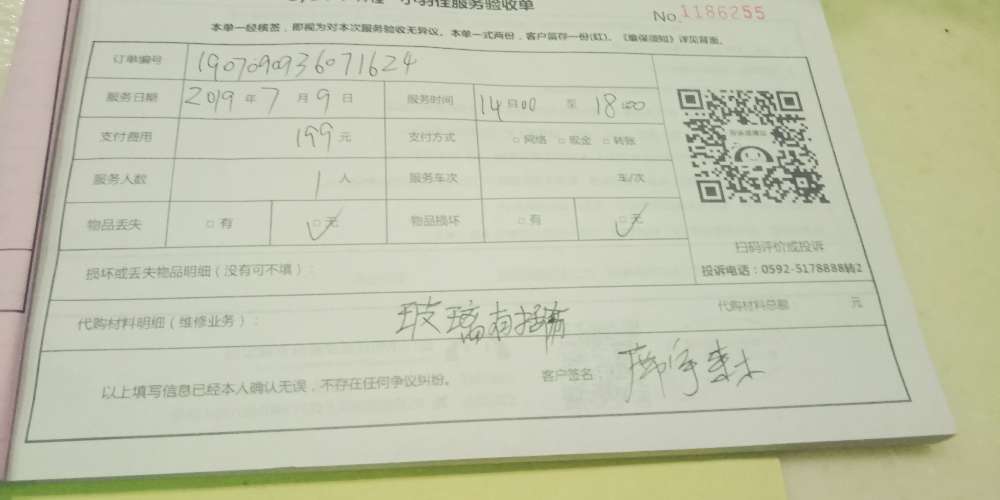 服务验收单
No.1186255
本单一经核签，即视为对本次服务验收无异议。本单一式两份，客户留存一份(红)。《维保须知》详见背面。
订单编号 1907090936071624
服务日期 2019 年 7 月 9 日 服务时间 14:00 至 18:00
支付费用 199 元 支付方式 □ 网络 □ 现金 □ 转账
服务人数 1 人 服务车次 车/次
物品丢失 □ 有 □ 无 物品损坏 □ 有 □ 无
扫码评价或投诉
损坏或丢失物品明细（没有可不填）：
投诉电话：0592-5178888转2
代购材料明细（维修业务）： 玻璃有 代购材料总额 元
以上填写信息已经本人确认无误，不存在任何争议纠纷。 客户签名